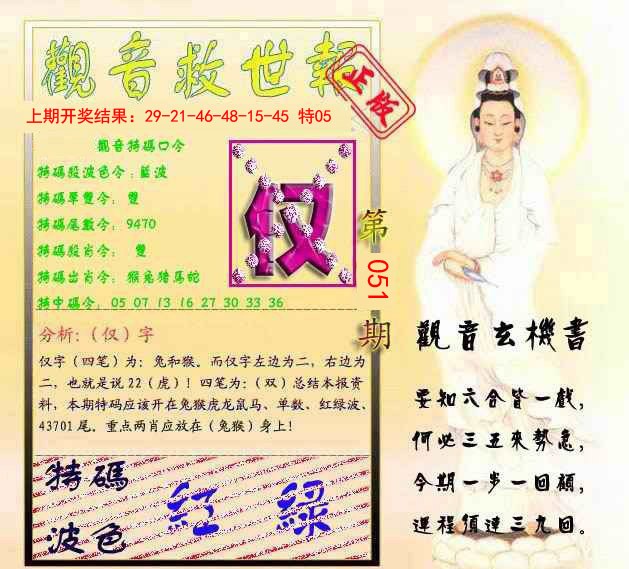 觀音救世報
正版
上期开奖结果：29-21-46-48-15-45 特05
觀音特碼口令
特碼段波色令：藍波
特碼單雙令： 雙
特碼尾數令：9470
特碼段肖令： 雙
特碼出肖令：猴兔猪馬蛇
特中碼令：05 07 13 16 27 30 33 36
仅
第051期
分析：（仅）字
仅字（四笔）为：兔和猴。而仅字左边为二，右边为
二，也就是说22（虎）！四笔为：（双）总结本报资
料，本期特码应该开在兔猴虎龙鼠马、单数、红绿波、
43701尾。重点两肖应放在（兔猴）身上！
特碼
波色
紅 綠
觀音玄機書
要知六合皆一戲，
何必三五來勢急，
今期一步一回頭，
運程須連三九回。